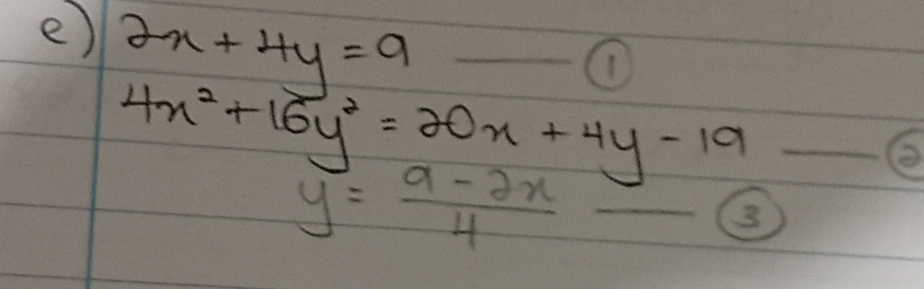 e) 2x + 4y = 9 —— ①
4x² + 16y² = 20x + 4y - 19 —— ②
y = (9 - 2x)/4 —— ③